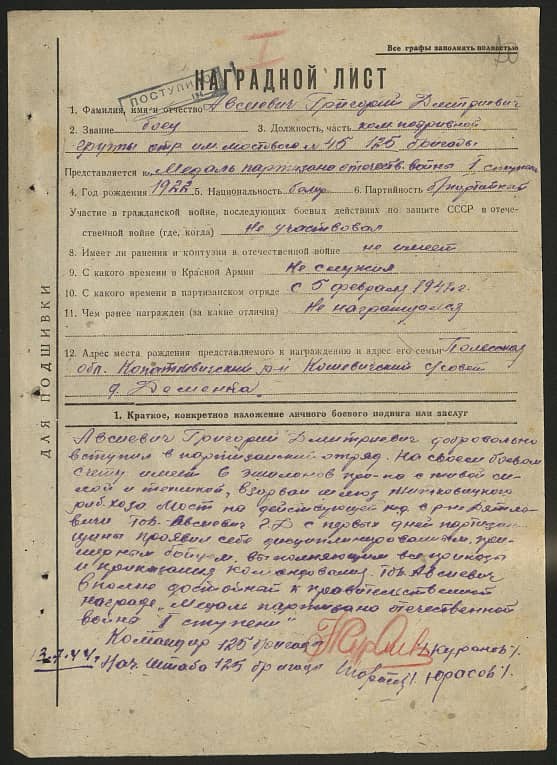 Все графы заполнять полностью
I
ПОСТУПИЛО
НАГРАДНОЙ ЛИСТ
1. Фамилия, имя и отчество Авсиевич Григорий Дмитриевич
2. Звание боец 3. Должность, часть ком. подрывной
группы отр. им. мостового № 45 125 бригады
Представляется к Медаль партизана отечеств. войны I ступени
4. Год рождения 1922 5. Национальность белор 6. Партийность б/партейный
Участие в гражданской войне, последующих боевых действиях по защите СССР в отече-
ственной войне (где, когда) Не участвовал
8. Имеет ли ранения и контузии в отечественной войне не имеет
9. С какого времени в Красной Армии Не служил
10. С какого времени в партизанском отряде с 5 февраля 1942 г.
11. Чем ранее награжден (за какие отличия) Не награждался
12. Адрес места рождения представляемого к награждению и адрес его семьи Полесская
обл. Копаткевичский р-н Кошевичский с/совет
д. Деменка
ДЛЯ ПОДШИВКИ
1. Краткое, конкретное изложение личного боевого подвига или заслуг
Авсиевич Григорий Дмитриевич добровольно
вступил в партизанский отряд. На своем боевом
счету имеет 6 эшалонов пр-ка с живой си-
лой и техникой, взорвал шлюз Житковицкого
рыбхоза Мост на действующей ж.д. в р-не Дятло-
вичи Тов. Авсиевич Г.Д с первых дней партизан-
щины проявил себя дисциплинированным, при-
мерным бойцом, выполняющим все приказы
и приказания командования. Тов. Авсиевич
вполне достойный к правительственной
награде „Медаль партизана отечественной
война I ступени"
Командир 125 бригады /Куранов/.
3.7.44. Нач. Штаба 125 бригады /Юрасов/.